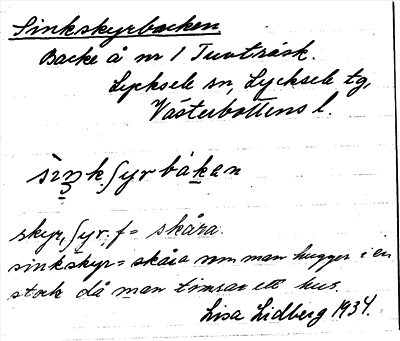 Sinkskyrbacken
Backe å nr 1 Tuvträsk.
Lycksele sn, Lycksele tg,
Västerbottens l.
sìŋkʃyrbàkan
skyr, ʃyr. f = skåra.
sinkskyr = skåra som man hugger i en
stock då man timrar ett hus.
Lisa Lidberg 1934.